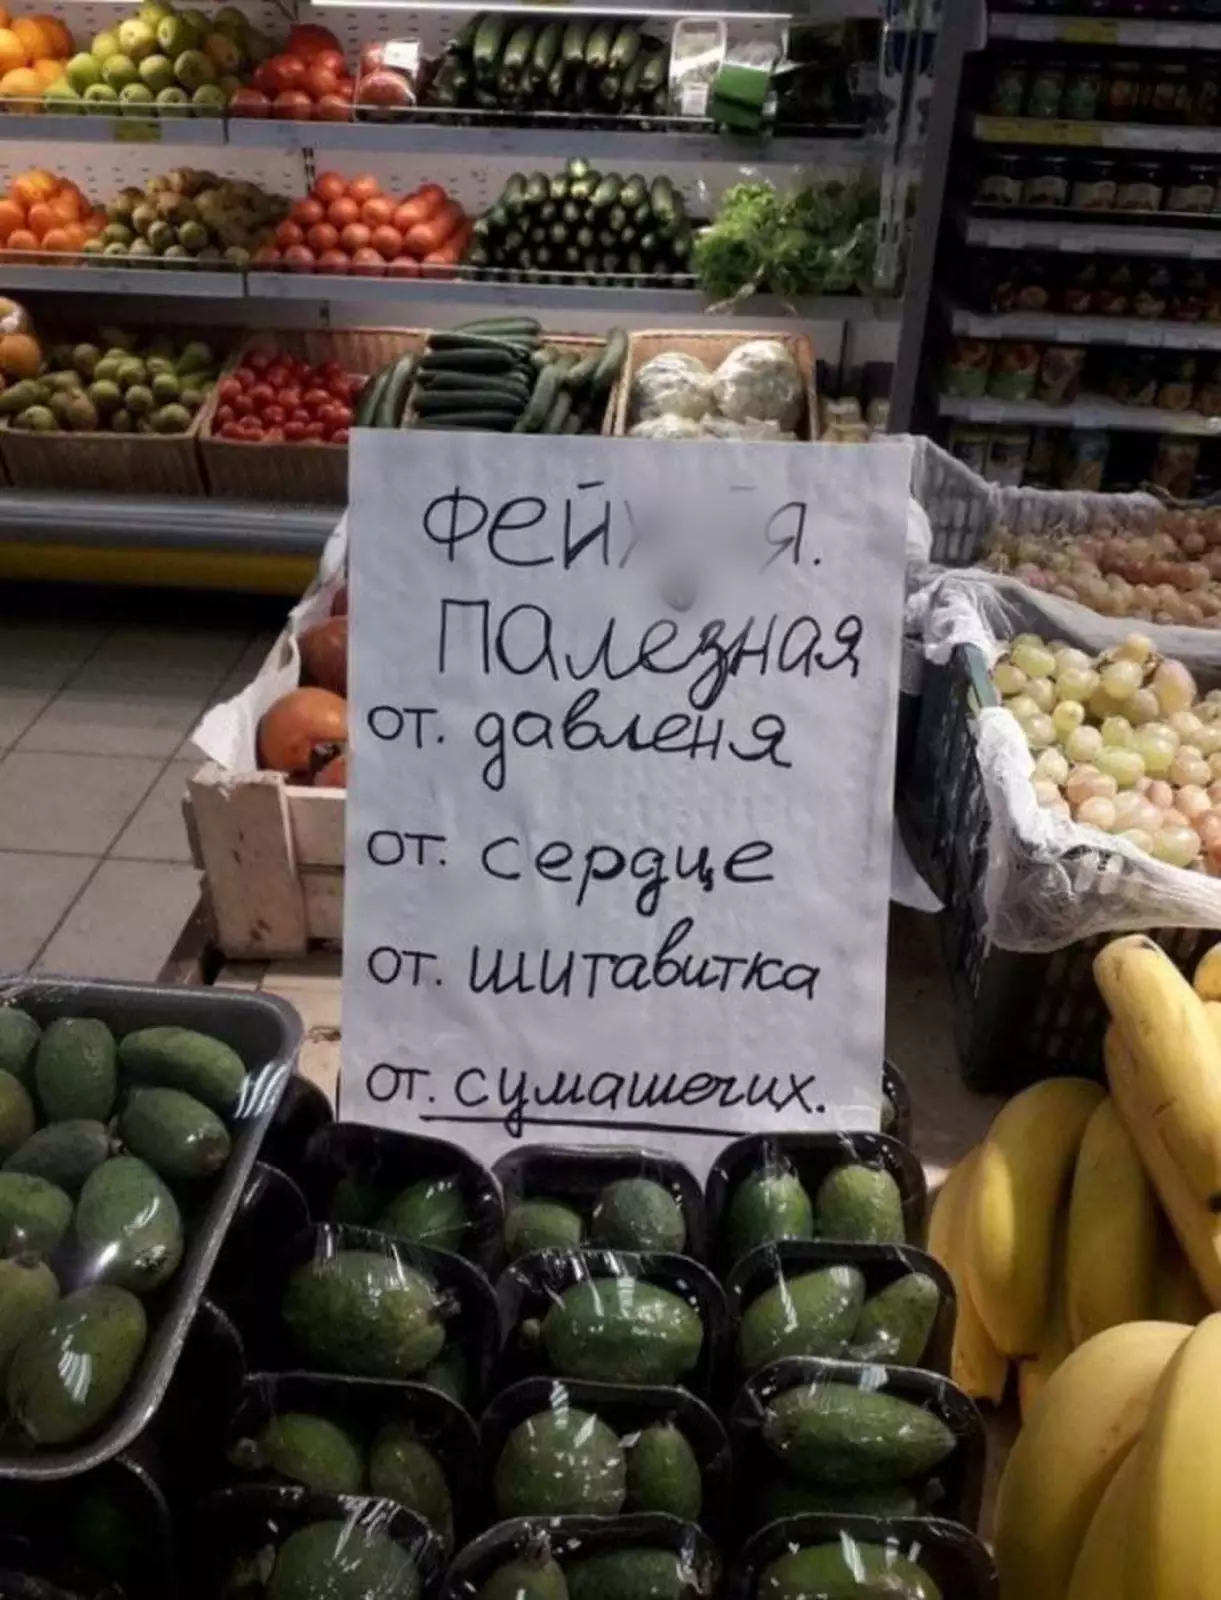 ПАлезная
от. давленя
от. сердце
от. шитавитка
от. сумашечих.